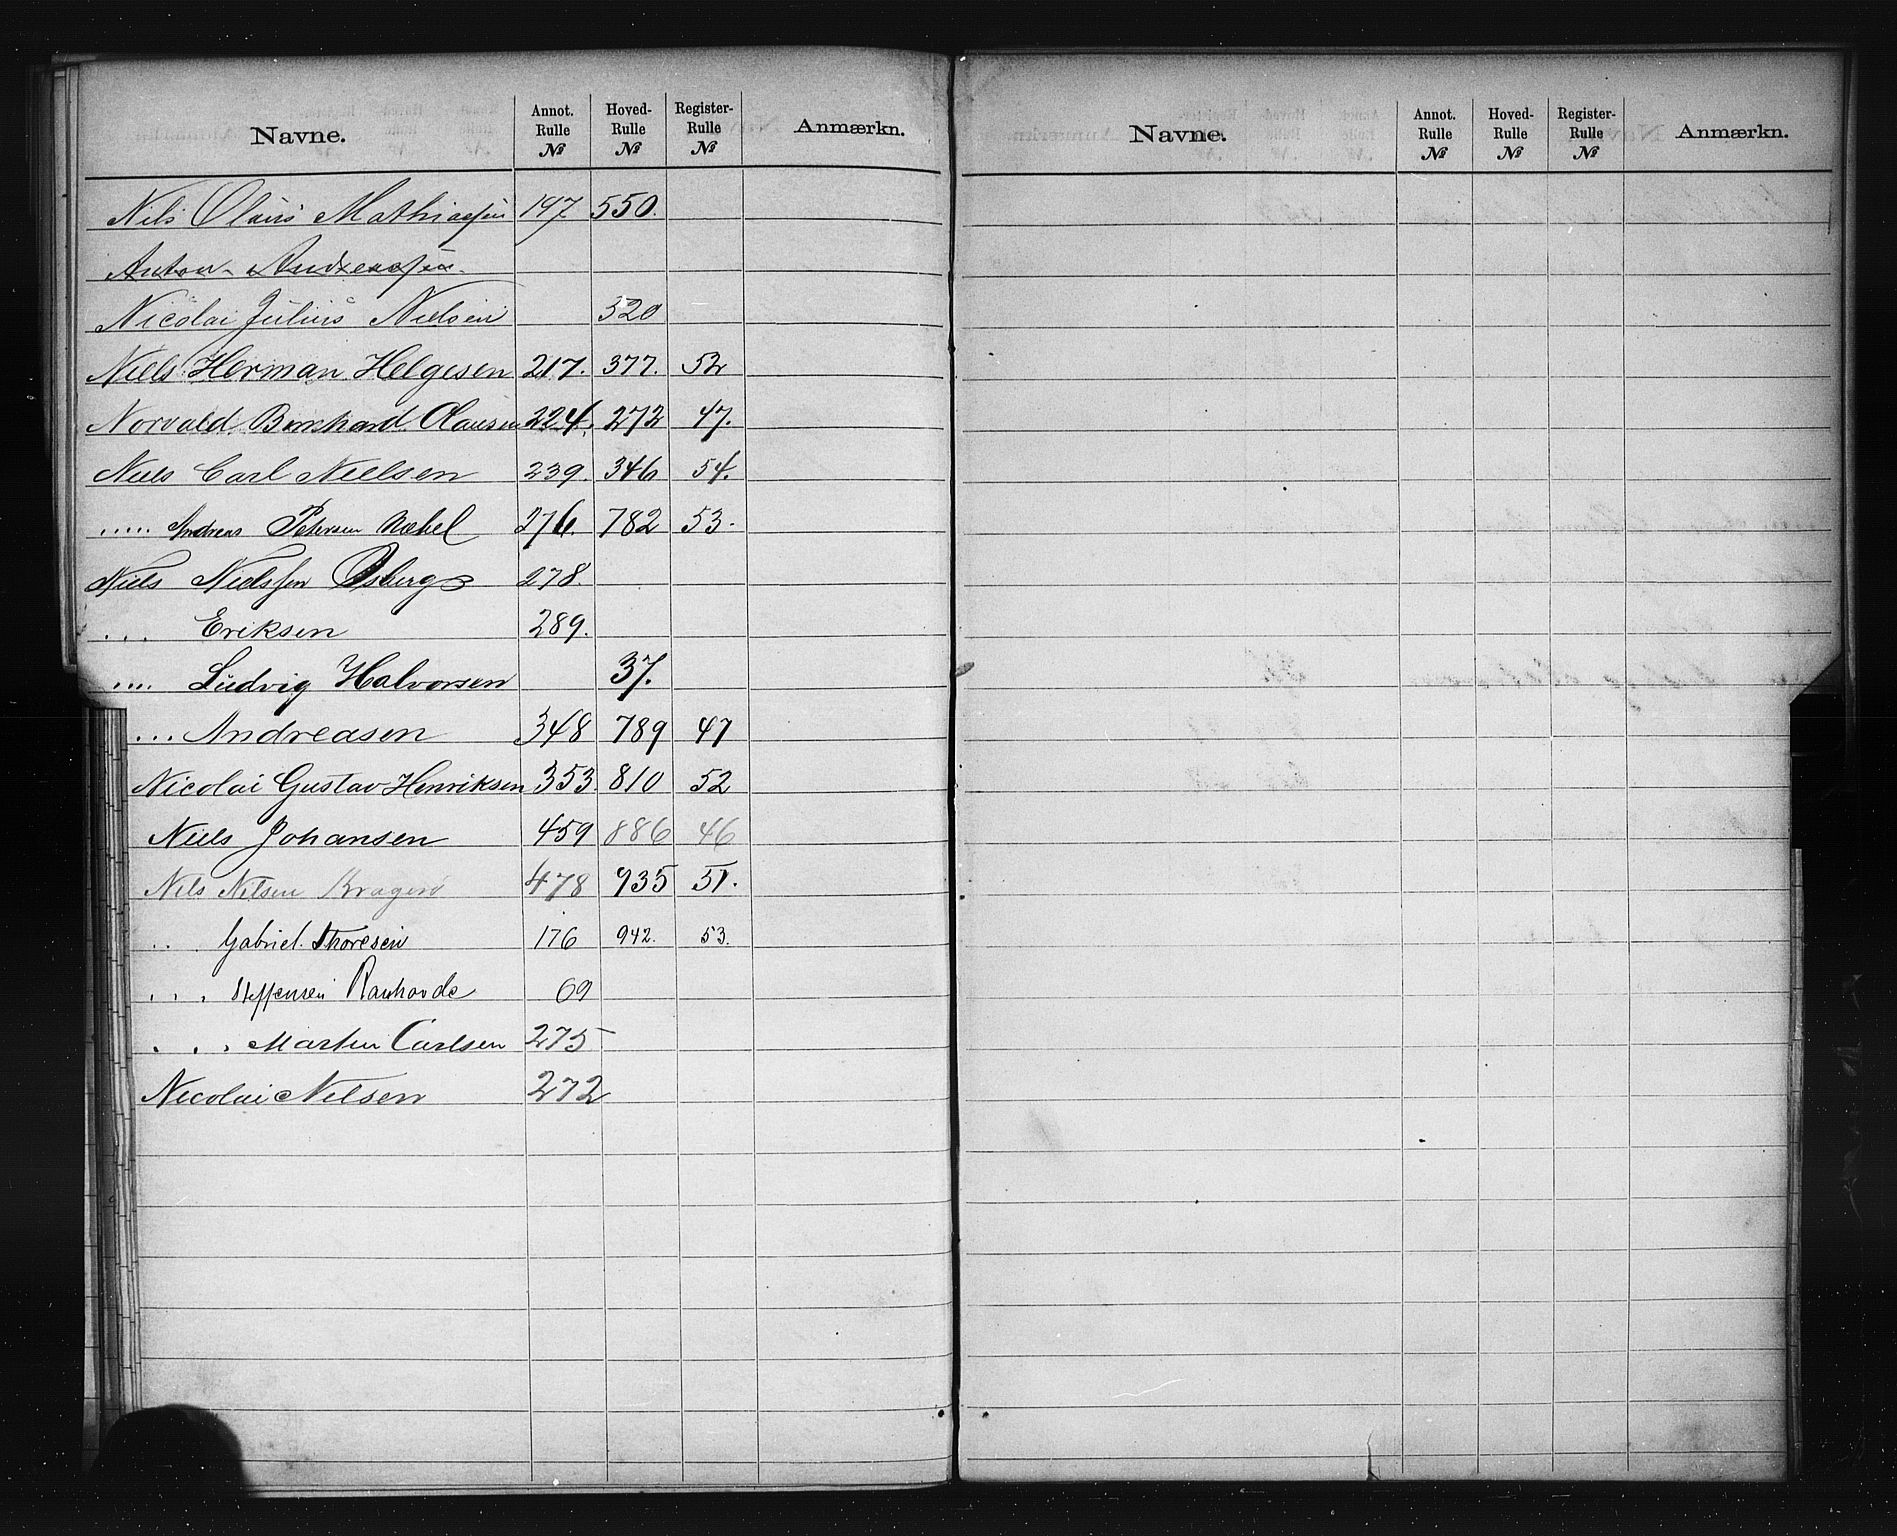 Navne. Annot. Rulle № Hoved-Rulle № Register-Rulle № Anmærkn.
Nils Olaus Mathiassen 197 550.
Anton Andreassen
Nicolai Julius Nielsen 520
Niels Herman Helgesen 217. 377. 52
Norvald Bernhard Olausen 224. 272 47.
Niels Carl Nielsen 239. 346 54.
..... Andreas Petersen Næbel 276. 782 53.
Niels Nielssen Osberg 278.
... Eriksen 289.
.... Ludvig Halvorsen 37.
... Andreasen 348 789 47
Nicolai Gustav Henriksen 353. 810 52
Niels Johansen 459 886 46
Nils Nilsen Kragerø 478 935 51.
.. Gabriel Thoresen 176 942. 53.
... Steffensen 69
... Martin Carlsen 275
Nicolai Nilsen 272
Navne. Annot. Rulle № Hoved-Rulle № Register-Rulle № Anmærkn.